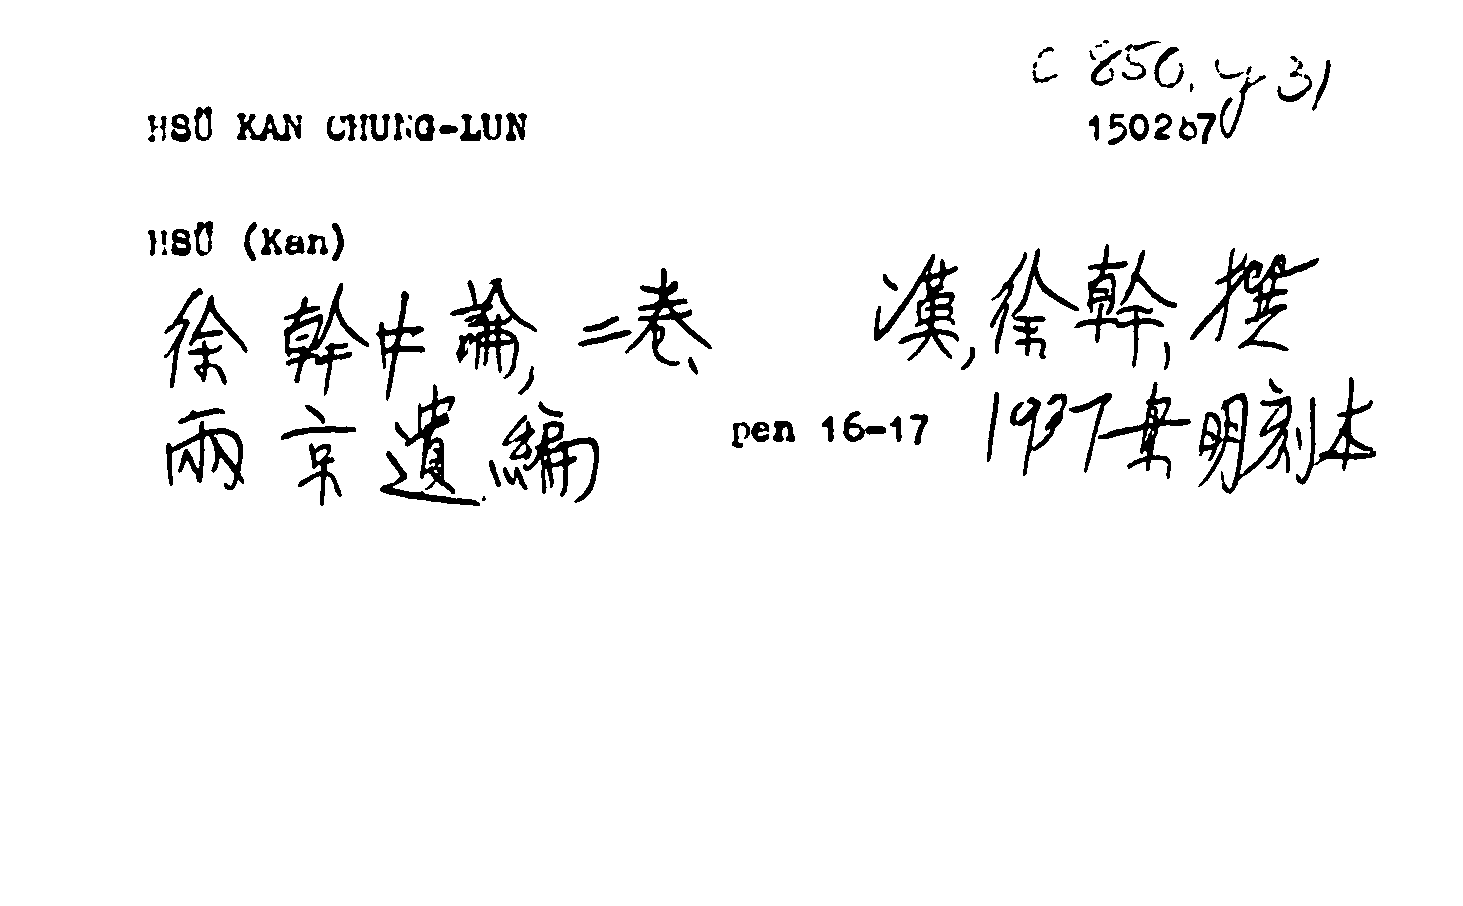 C 850. y 31
HSÜ KAN CHUNG-LUN 150267
HSÜ (Kan)
徐幹中論, 二卷、 漢, 徐幹, 撰
兩京遺編 pen 16-17 1937 景明刻本